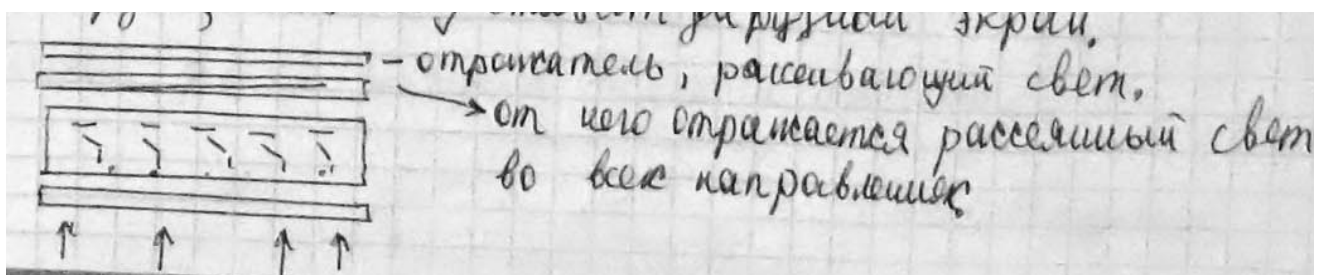 экран.
- отражатель, рассеивающий свет.
от него отражается рассеянный свет
во всех направлениях